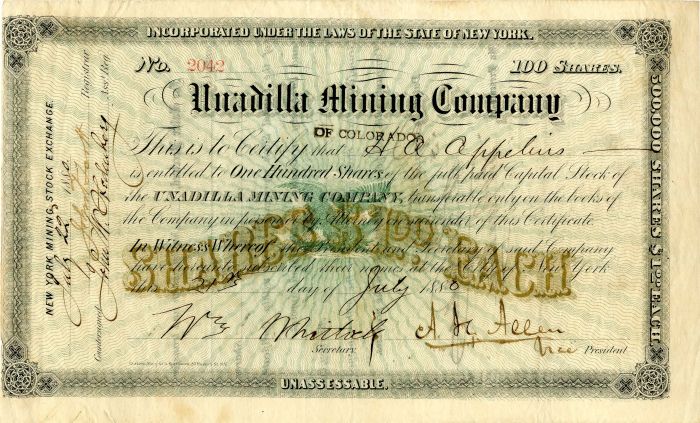 INCORPORATED UNDER THE LAWS OF THE STATE OF NEW YORK.
No. 2042
100 SHARES.
Unadilla Mining Company
OF COLORADO
This is to Certify that H A Appelius
is entitled to One Hundred Shares of the full paid Capital Stock of
the UNADILLA MINING COMPANY, transferable only on the books of
the Company in person or by Attorney on surrender of this Certificate.
In Witness Whereof, the President and Secretary of said Company
have hereunto subscribed their names at the City of New York
this day of July 1880
SHARES $1.00 EACH
Wm Whitlock
Secretary.
A. H. Allen
Vice President
UNASSESSABLE.
NEW YORK MINING STOCK EXCHANGE.
July 1880
Registrar
Countersigned
500,000 SHARES $1.00 EACH